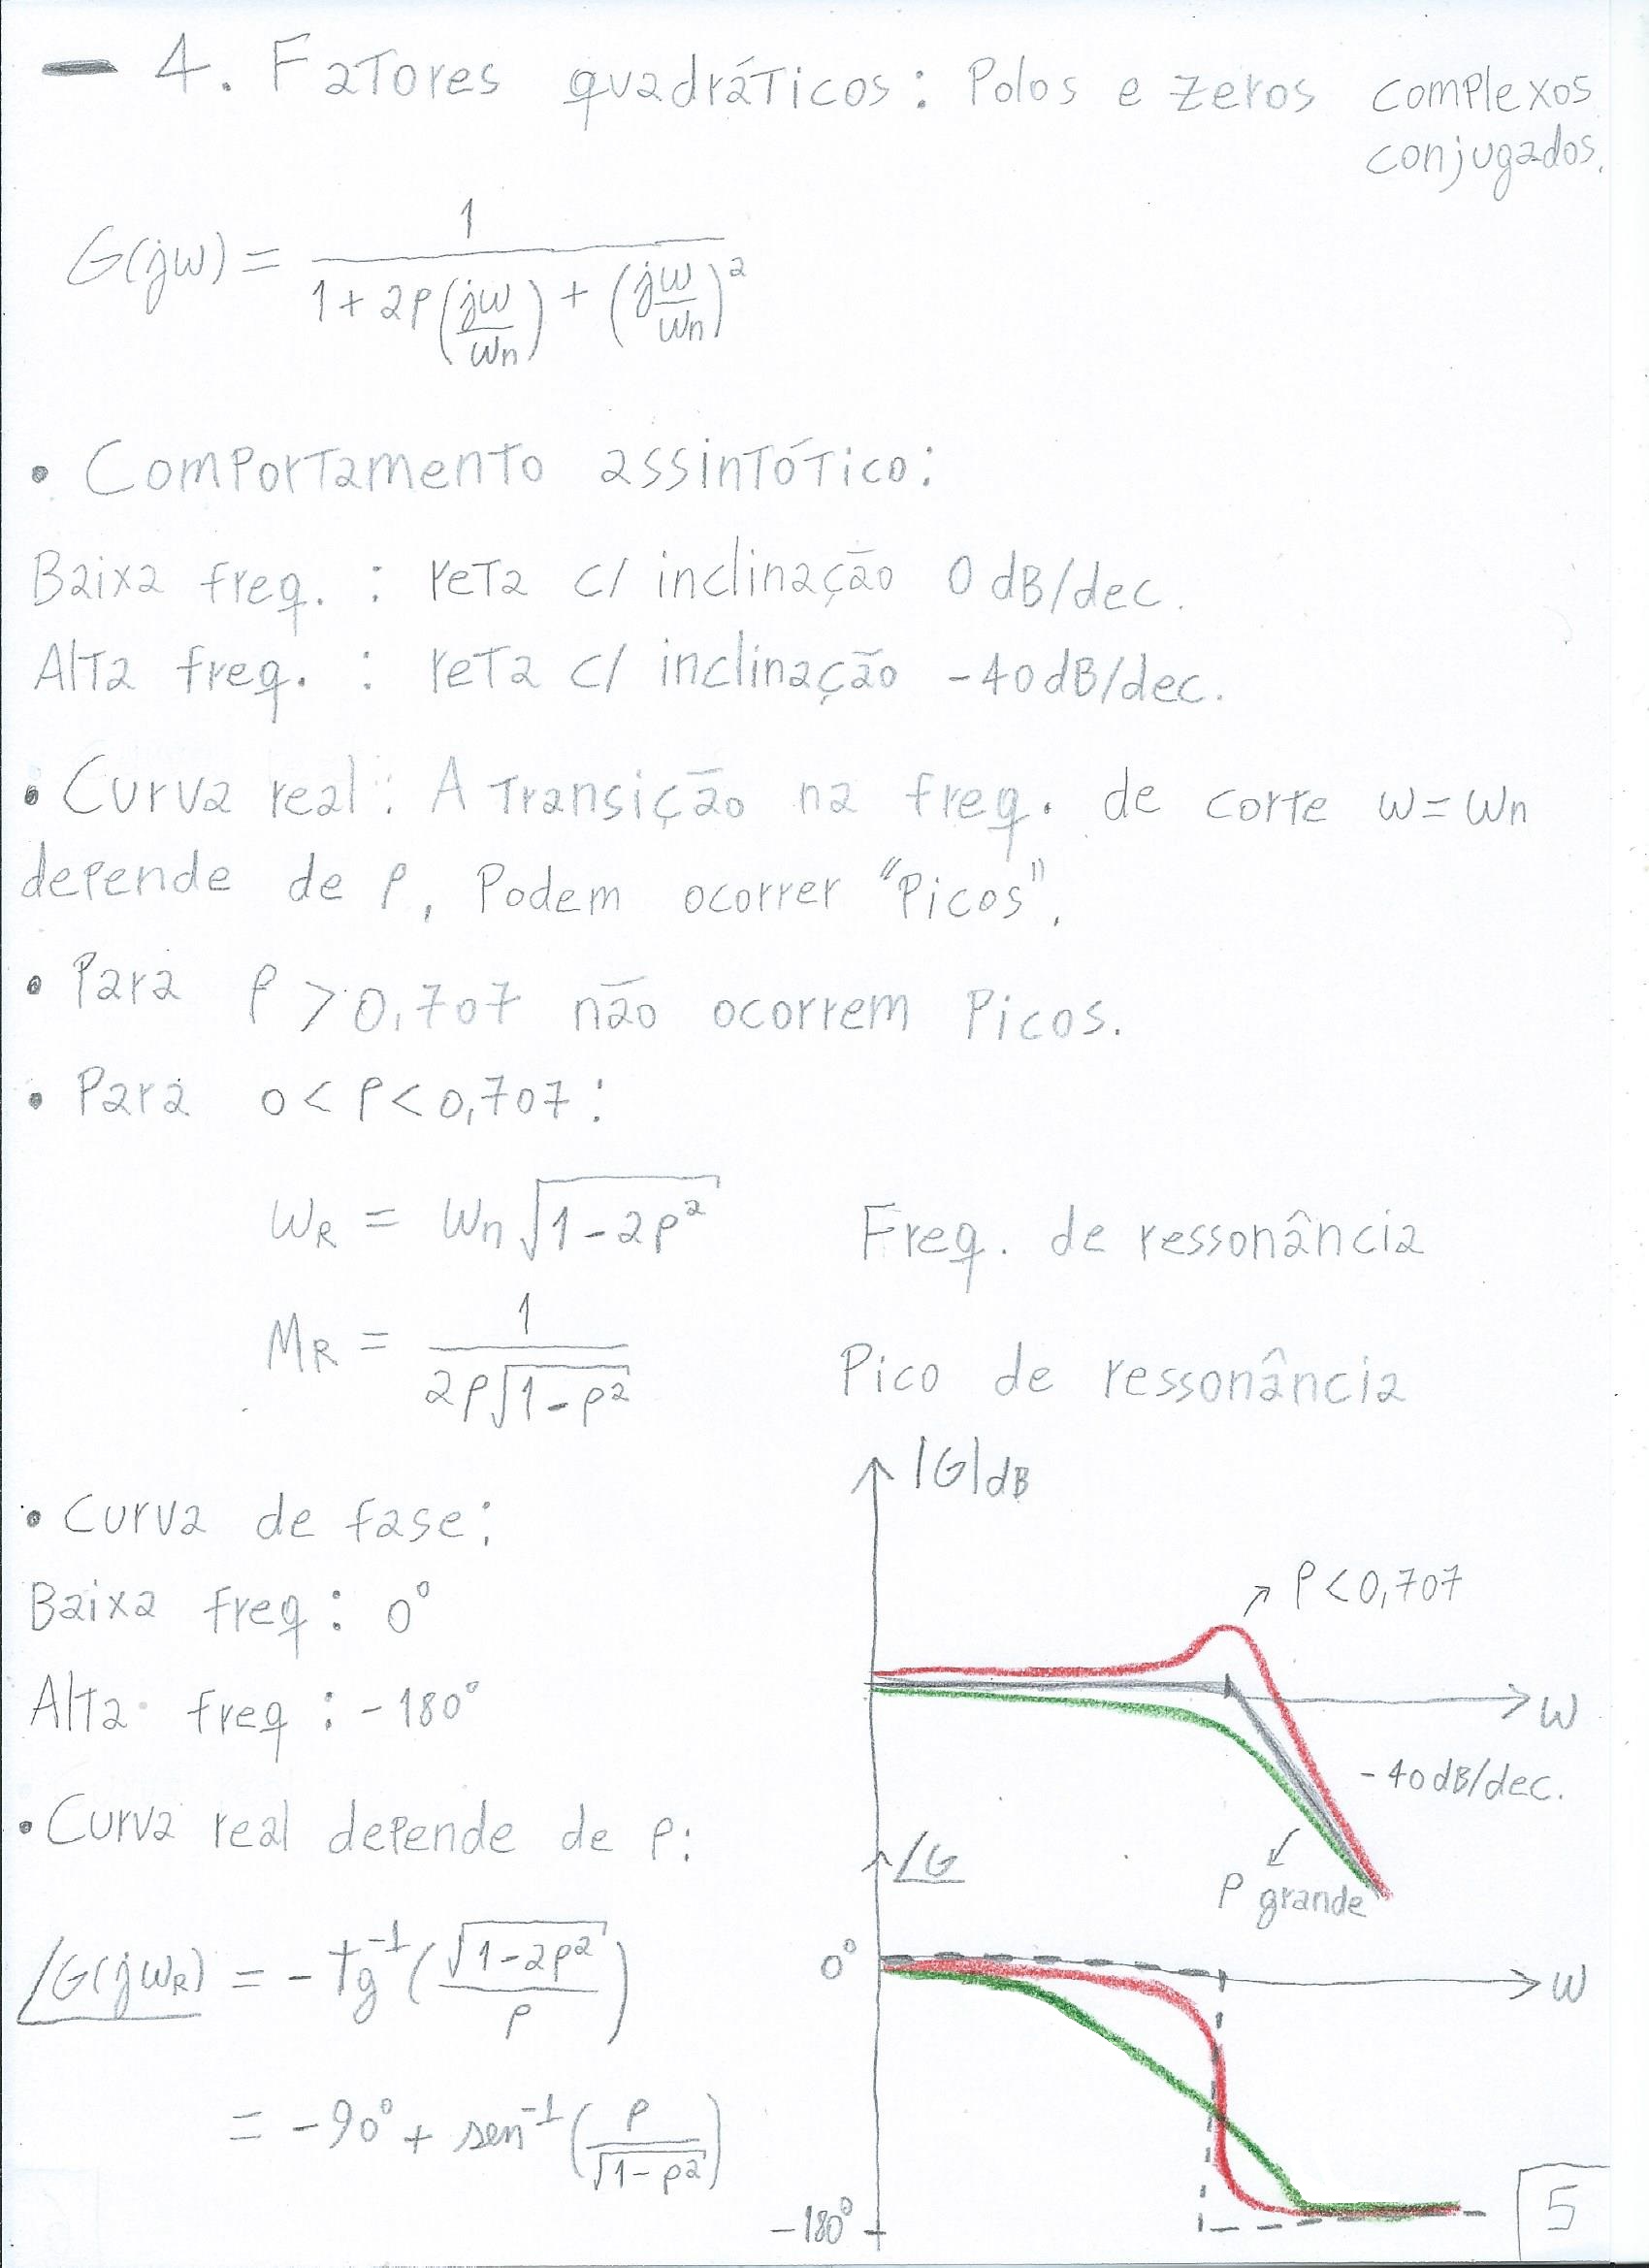 - 4. Fatores quadráticos: Polos e zeros complexos
conjugados.
G(jω) = 1 / (1 + 2ρ(jω/ωn) + (jω/ωn)²)
• Comportamento assintótico:
Baixa freq. : reta c/ inclinação 0 dB/dec.
Alta freq. : reta c/ inclinação -40dB/dec.
• Curva real: A transição na freq. de corte ω=ωn
depende de ρ, Podem ocorrer "Picos".
• Para ρ > 0,707 não ocorrem Picos.
• Para 0 < ρ < 0,707:
ωR = ωn√(1-2ρ²) Freq. de ressonância
MR = 1 / (2ρ√(1-ρ²)) Pico de ressonância
• Curva de fase:
Baixa freq: 0°
Alta freq: -180°
• Curva real depende de ρ:
/G(jωR) = -tg⁻¹(√(1-2ρ²)/ρ)
= -90° + sen⁻¹(ρ/√(1-ρ²))
|G|dB
ρ<0,707
ω
-40dB/dec.
ρ grande
/G
0°
ω
-180°
5